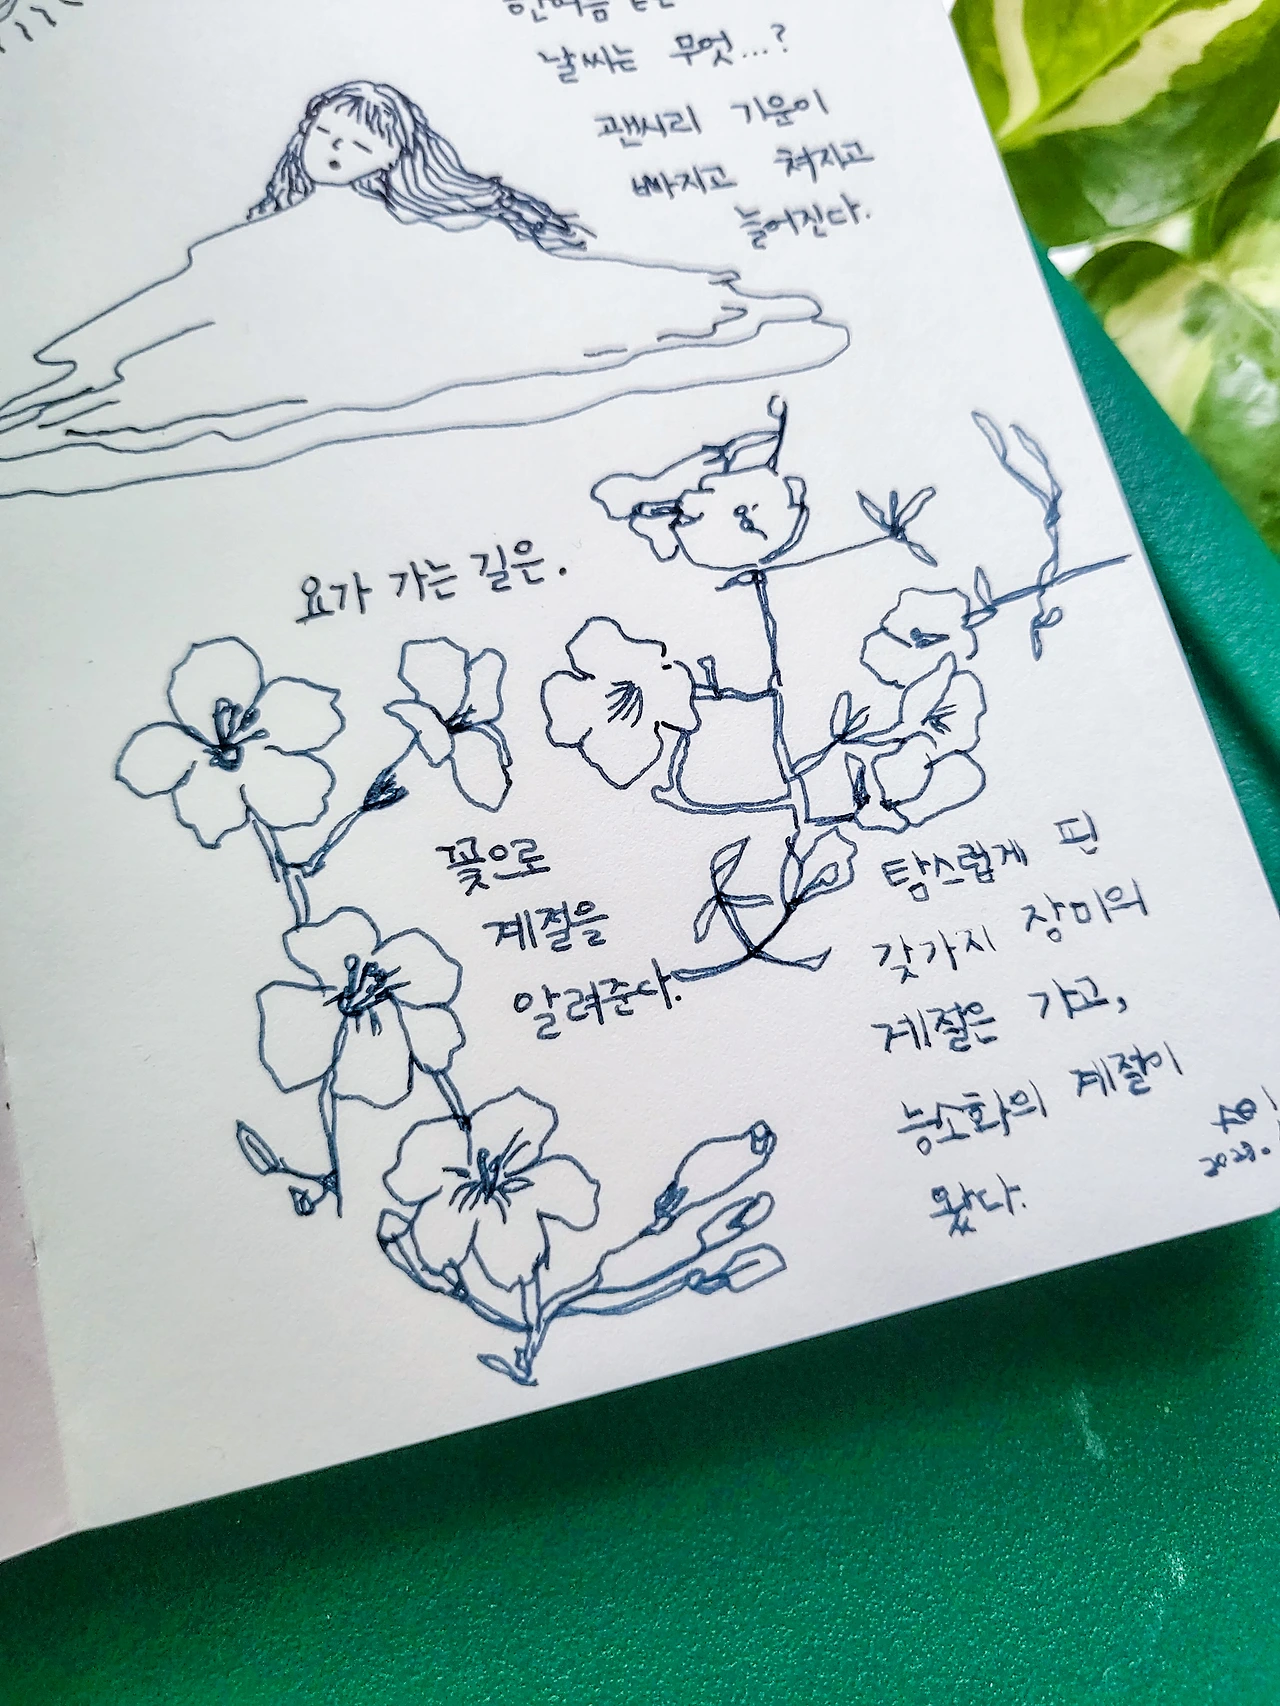 한여름 같은
날씨는 무엇...?
괜시리 기운이
빠지고 쳐지고
늘어진다.
요가 가는 길은.
꽃으로
계절을
알려준다.
탐스럽게 핀
갖가지 장미의
계절은 가고,
능소화의 계절이
왔다.